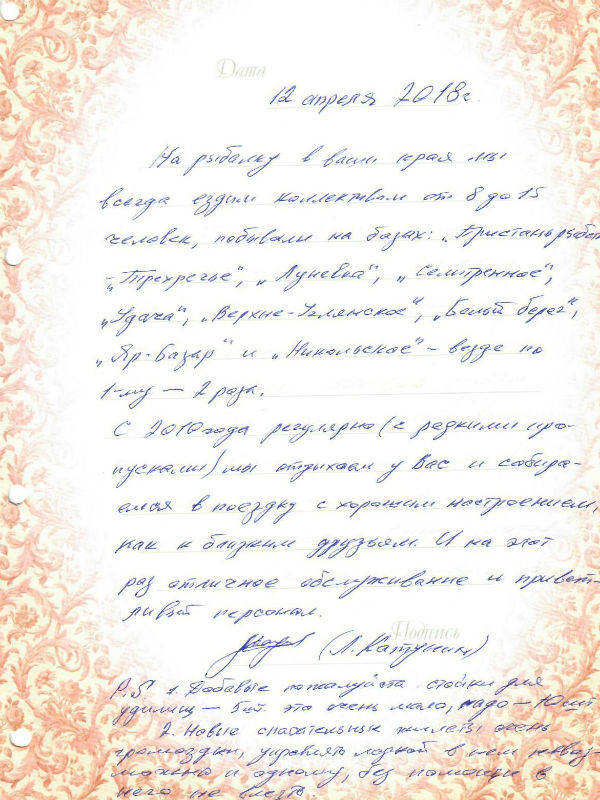 Дата
12 апреля 2018 г.
На рыбалку в ваши края мы
всегда ездим коллективом от 8 до 15
человек, побывали на базах: „Пристань рыбак
- „Трехречье", „Луневка", „Селитренное",
„Удача", „Верхне-Углянское", „Белый берег",
„Яр-Базар" и „Никольское" - везде по
1-му — 2 раза.
С 2010 года регулярно (с редкими про-
пусками) мы отдыхаем у Вас и собира-
емся в поездку с хорошим настроением,
как к близким друзьям. И на этот
раз отличное обслуживание и привет-
ливый персонал.
Подпись
(Л. Катунин)
P.S 1. Добавьте пожалуйста стойки для
удилищ — 5 шт. это очень мало, надо — 10 шт
2. Новые спасательные жилеты очень
громоздки, управлять лодкой в нем невоз-
можно и одному, без помощи в
него не влезть